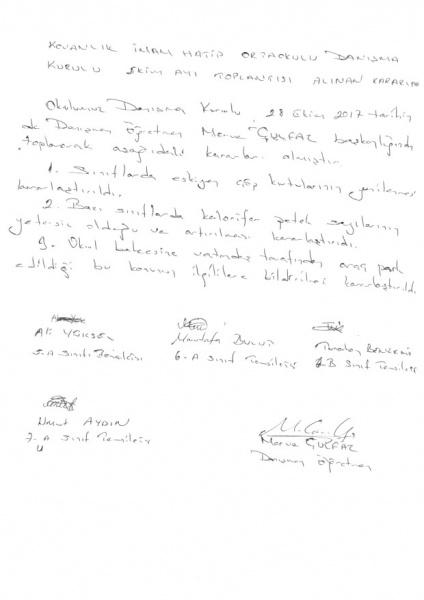 KOVANLIK İMAM HATİP ORTAOKULU DANIŞMA
KURULU EKİM AYI TOPLANTISI ALINAN KARARLAR
Okulumuz Danışma Kurulu, 28 Ekim 2017 tarihin
de Danışman Öğretmen Merve başkanlığında
toplanarak aşağıdaki kararları almıştır.
1. Sınıflarda eskiyen çöp kutularının yenilenmesi
kararlaştırıldı.
2. Bazı sınıflarda kalorifer petek sayılarının
yetersiz olduğu ve artırılması kararlaştırıldı.
3. Okul bahçesine vatandaş tarafından araç park
edildiği bu konunun ilgililere bildirilmesi kararlaştırıldı.
Ali YÜKSEL Mustafa BULUT
5-A Sınıf Temsilcisi 6-A Sınıf Temsilcisi B Sınıf Temsilcisi
Umut AYDIN
7-A Sınıf Temsilcisi
Merve
Danışman Öğretmen